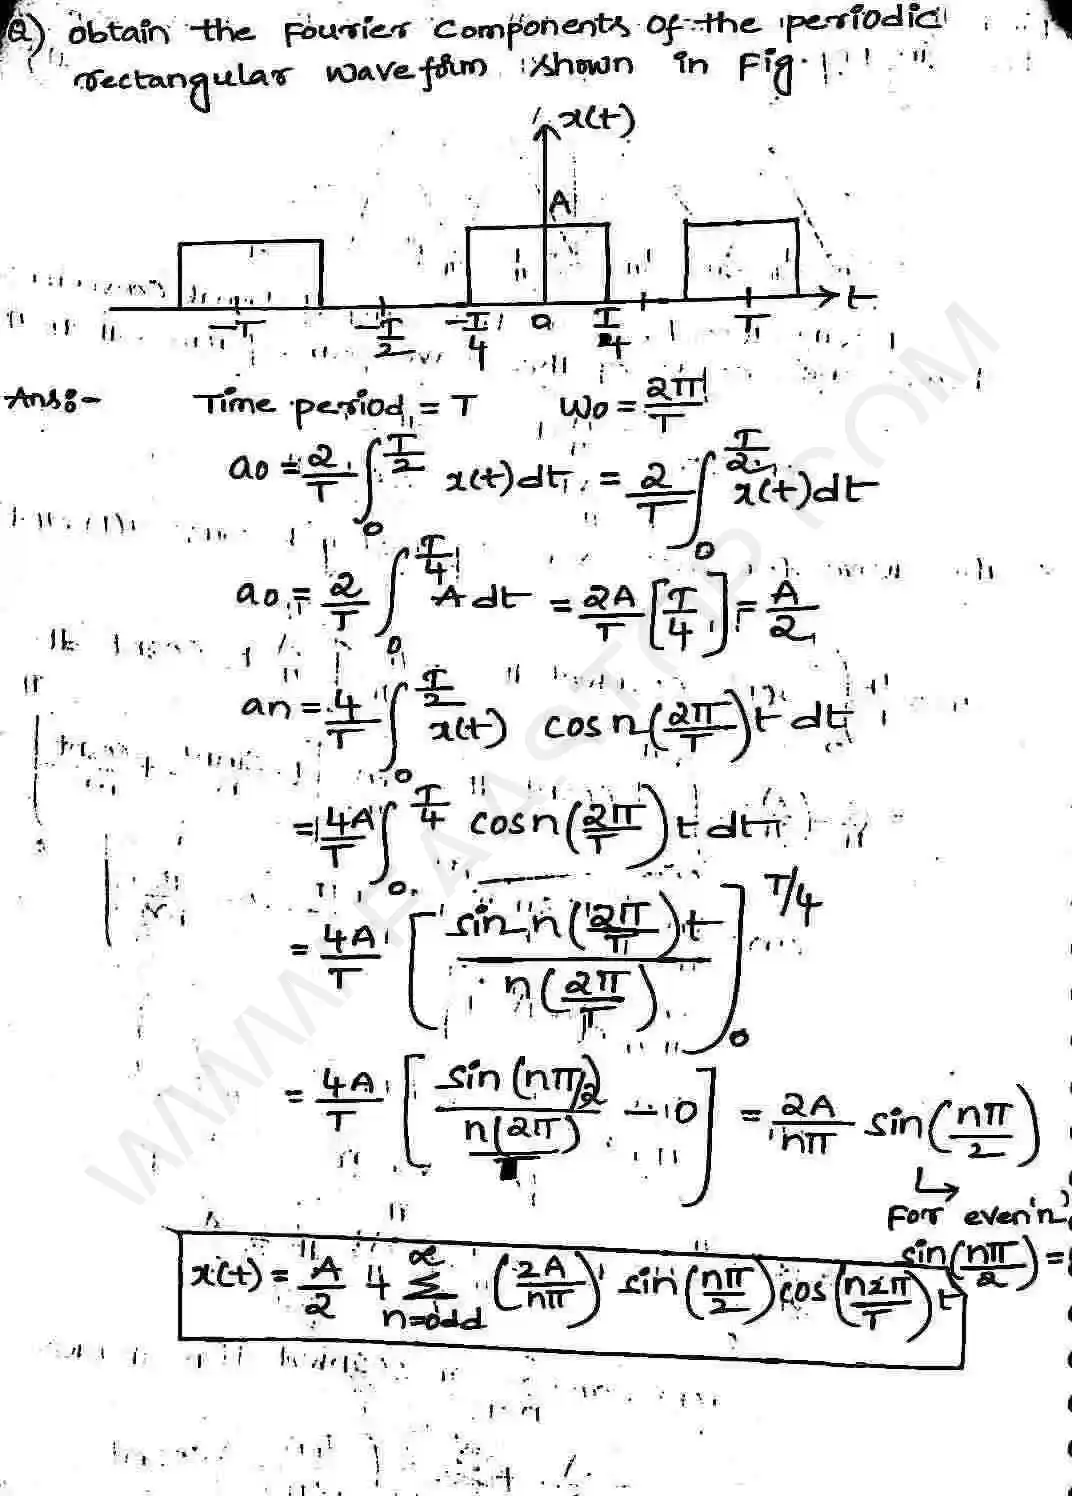 Q) obtain the Fourier Components of the periodic
rectangular waveform shown in Fig.
x(t)
A
-T -T/2 -T/4 0 T/4 T t
Ans:- Time period = T ω0 = 2π/T
a0 = 2/T ∫0^T/2 x(t) dt = 2/T ∫0^T/2 x(t) dt
a0 = 2/T ∫0^T/4 A dt = 2A/T [T/4] = A/2
an = 4/T ∫0^T/2 x(t) cos n(2π/T)t dt
= 4A/T ∫0^T/4 cos n(2π/T)t dt
= 4A/T [sin n(2π/T)t / n(2π/T)]0^T/4
= 4A/T [sin(nπ/2) / n(2π)/T - 0] = 2A/nπ sin(nπ/2)
↳ For even 'n'
sin(nπ/2) =
x(t) = A/2 + ∞Σn=odd (2A/nπ) sin(nπ/2) cos(n2π/T)t
WWW.FAASTUP.COM